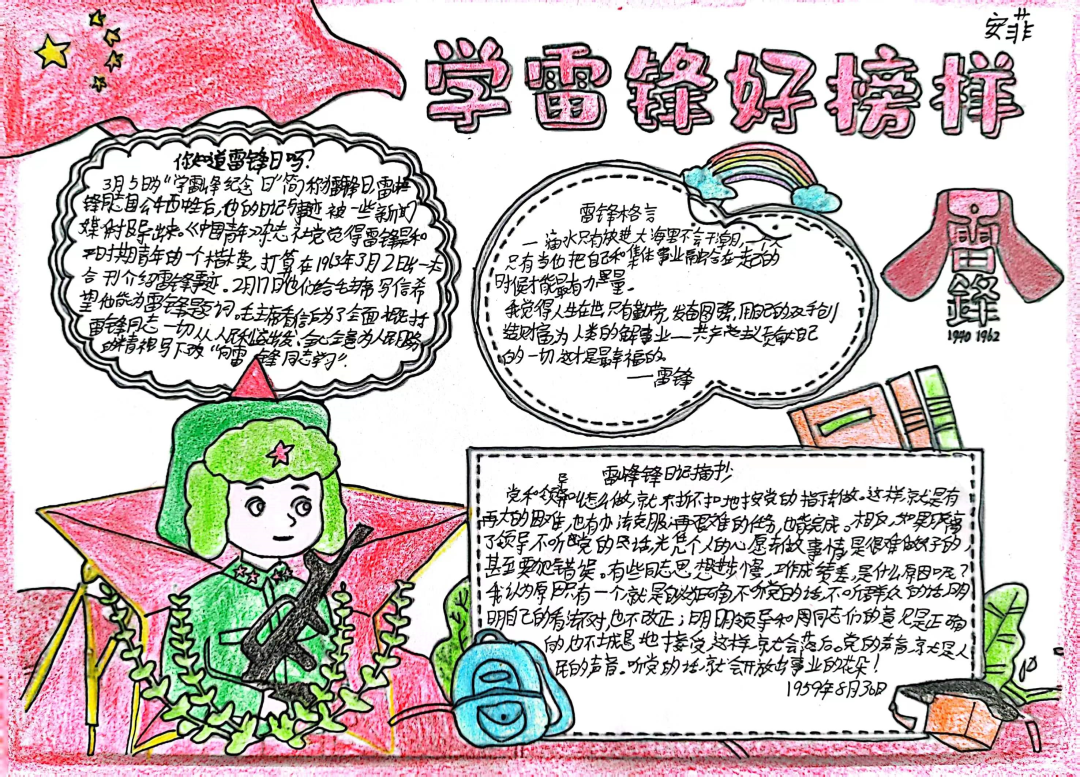 安菲
学雷锋好榜样
你知道雷锋日吗?
3月5日为"学雷锋纪念日"简称雷锋日,雷
锋同志因公牺牲后,他的日记事迹被一些新闻
媒体报导出来。《中国青年》杂志社党觉得雷锋是和
平时期青年的一个楷模,打算在1963年3月2日出一本
合刊介绍雷锋事迹。2月17日他们给毛主席写信希
望他能为雷锋题词,毛主席看信后为了全面概括
雷锋同志一切从人民利益出发,全心全意为人民服务
的精神写下了"向雷锋同志学习".
雷锋格言
一滴水只有放进大海里才会不干涸,一个人
只有当他把自己和集体事业融合在一起的
时候才能最有力量。
我觉得人生在世,只有勤劳,发奋图强,用自己的双手创
造财富,为人类的解放事业——共产主义贡献自己
的一切,这才是最幸福的。
——雷锋
雷鋒
1940 1962
雷锋日记摘抄
党和领导叫怎么做,就不折不扣地按党的指示做。这样就是有
再大的困难,也有办法克服;再艰难的任务,也能完成。相反,如果离
了领导,不听党的话,光凭个人的心愿去做事情是很难做好的,
甚至要犯错误。有些同志思想进步慢,工作成绩差,是什么原因呢?
我认为原因只有一个,就是不听党的话,不听群众的话,明
明自己的看法不对也不改正;明明领导和周同志们的意见是正确
的也不诚恳地接受,这样就会落后。党的声音,就是人
民的声音。听党的话,就会开放出事业的花朵!
1959年8月30日